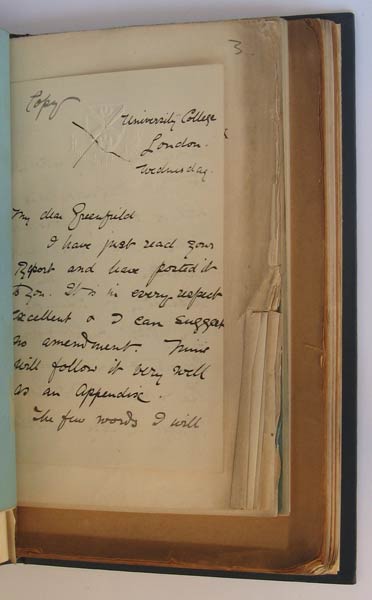 3
Copy
University College
London.
Wednesday.
My dear Greenfield
I have just read your
Report and have posted it
to you. It is in every respect
excellent & I can suggest
no amendment. Mine
will follow it very well
as an Appendix.
The few words I will